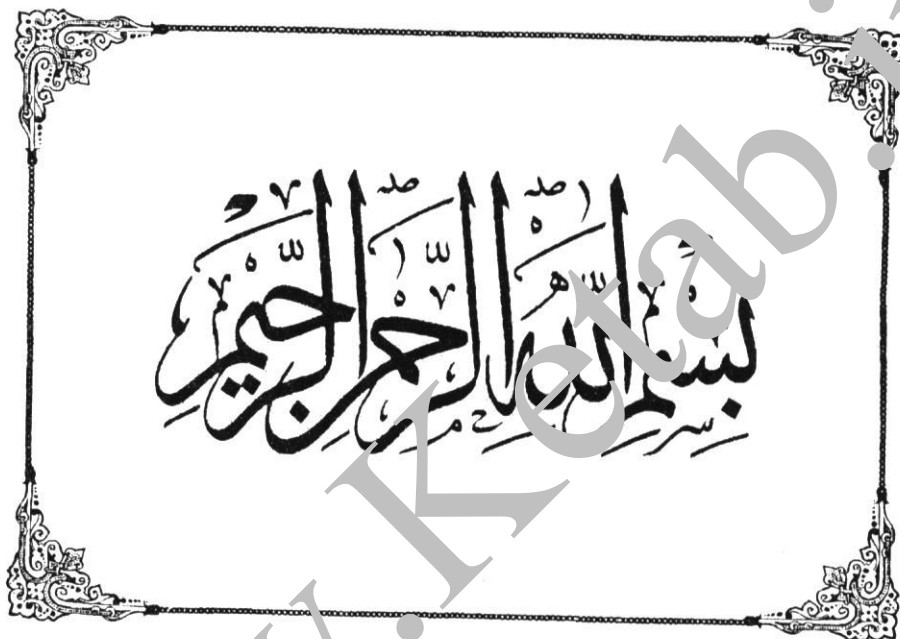 بِسْمِ اللّٰهِ الرَّحْمٰنِ الرَّحِيْمِ
.Ketab.i